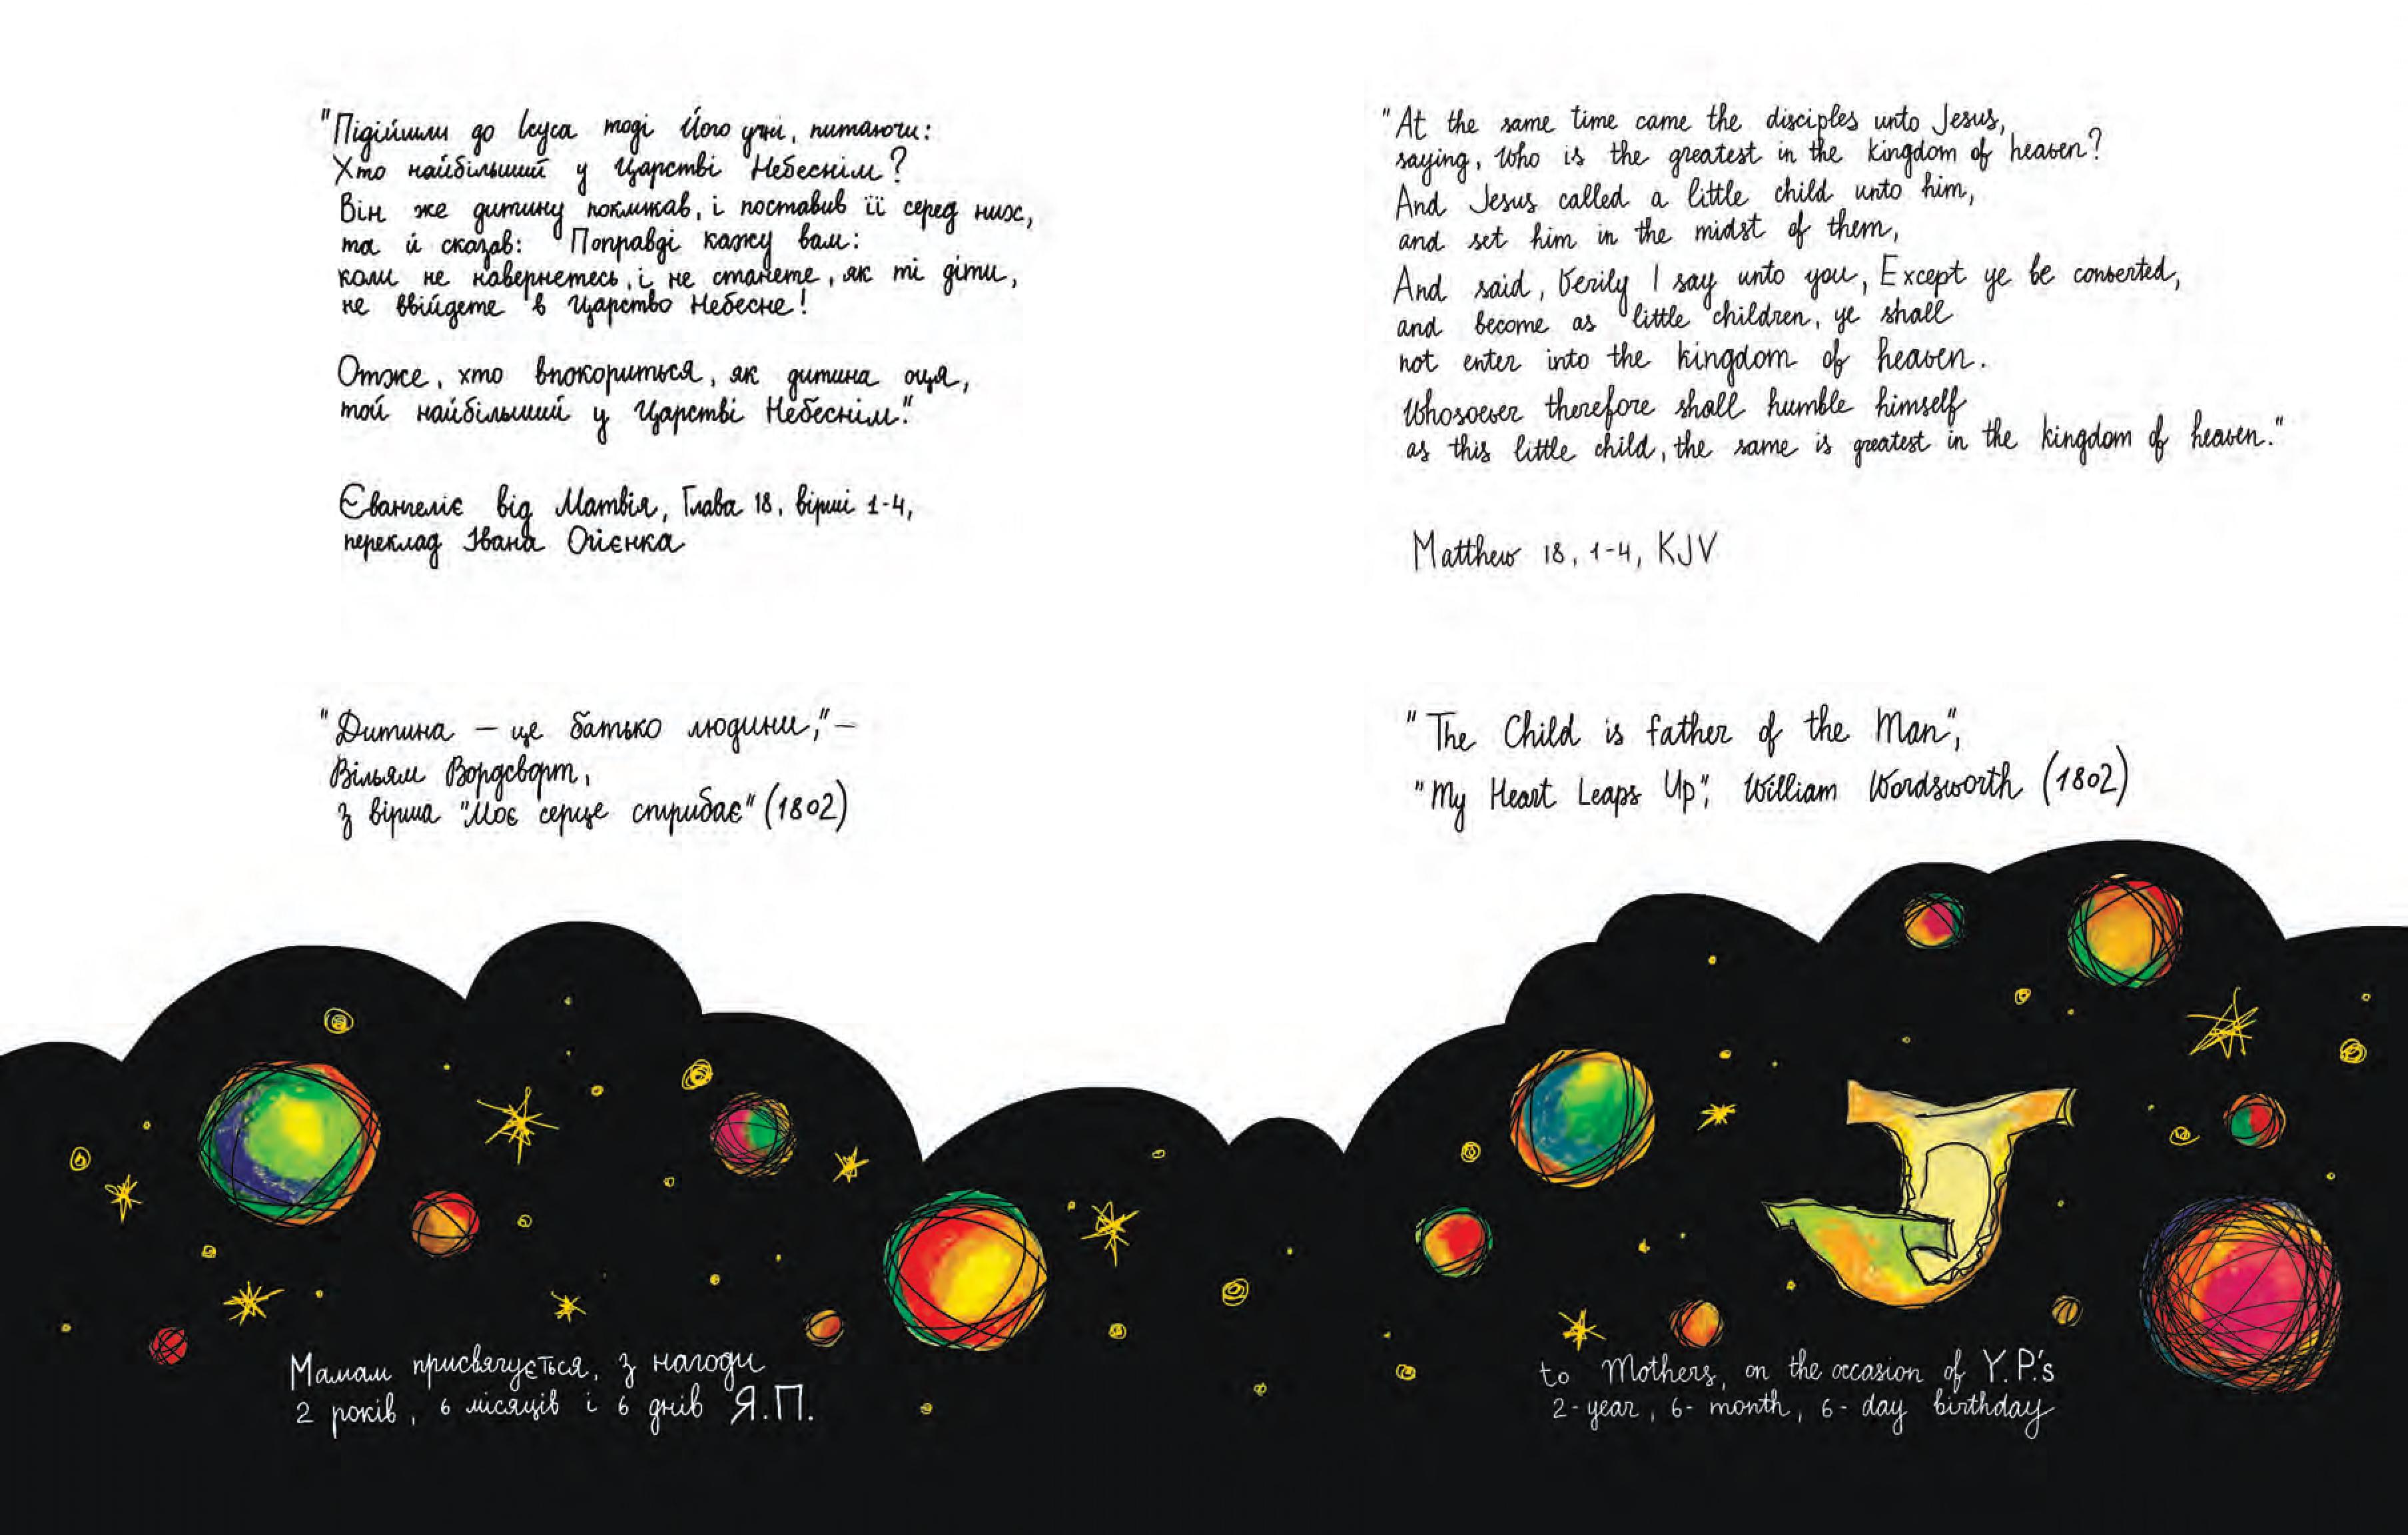 "Підійшли до Ісуса тоді Його учні, питаючи:
Хто найбільший у Царстві Небеснім?
Він же дитину покликав, і поставив її серед них,
та й сказав: Поправді кажу вам:
коли не навернетесь, і не станете, як ті діти,
не ввійдете в Царство Небесне!
Отже, хто впокориться, як дитина оця,
той найбільший у Царстві Небеснім."
Євангеліє від Матвія, Глава 18, вірші 1-4,
переклад Івана Огієнка
"Дитина – це батько людини," –
Вільям Вордсворт,
з вірша "Моє серце стрибає" (1802)
Мамам присвячується, з нагоди
2 років, 6 місяців і 6 днів Я.П.
"At the same time came the disciples unto Jesus,
saying, Who is the greatest in the kingdom of heaven?
And Jesus called a little child unto him,
and set him in the midst of them,
And said, Verily I say unto you, Except ye be converted,
and become as little children, ye shall
not enter into the kingdom of heaven.
Whosoever therefore shall humble himself
as this little child, the same is greatest in the kingdom of heaven."
Matthew 18, 1-4, KJV
"The Child is father of the Man",
"My Heart Leaps Up", William Wordsworth (1802)
to Mothers, on the occasion of Y.P.'s
2-year, 6-month, 6-day birthday